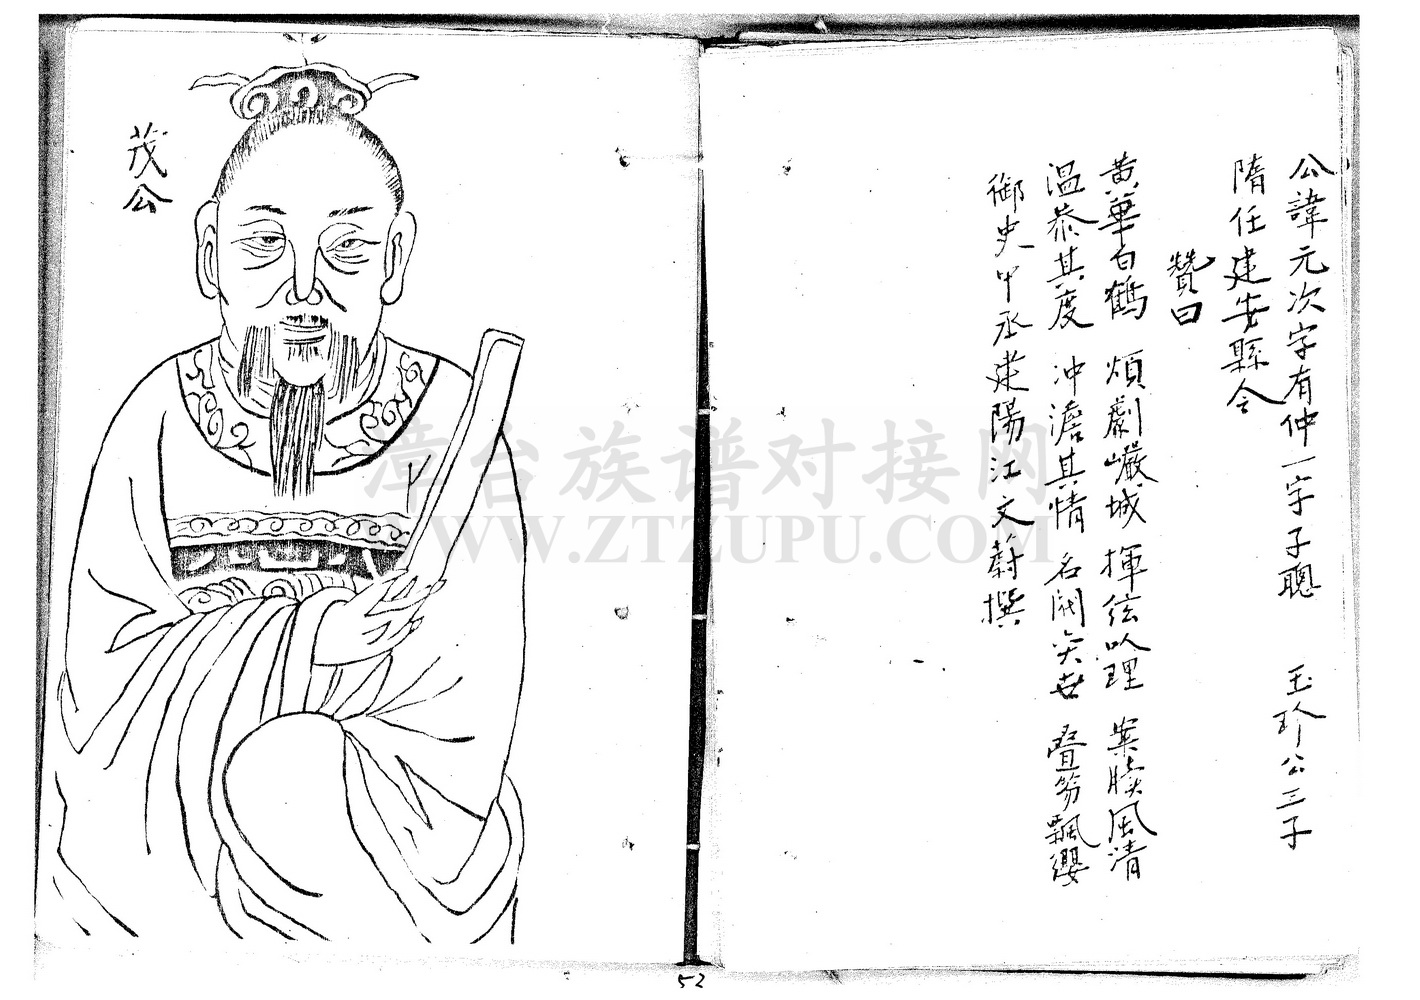 公諱元次字有仲一字子聰 玉珍公三子
隋任建安縣令
贊曰
黃華白鶴 煩劇巖城 揮弦以理 案牘風清
温恭其度 沖澹其情 名閥奕世 疊笏飄纓
御史中丞建陽江文蔚撰
茂公
漳台族谱对接网
WWW.ZTZUPU.COM
52